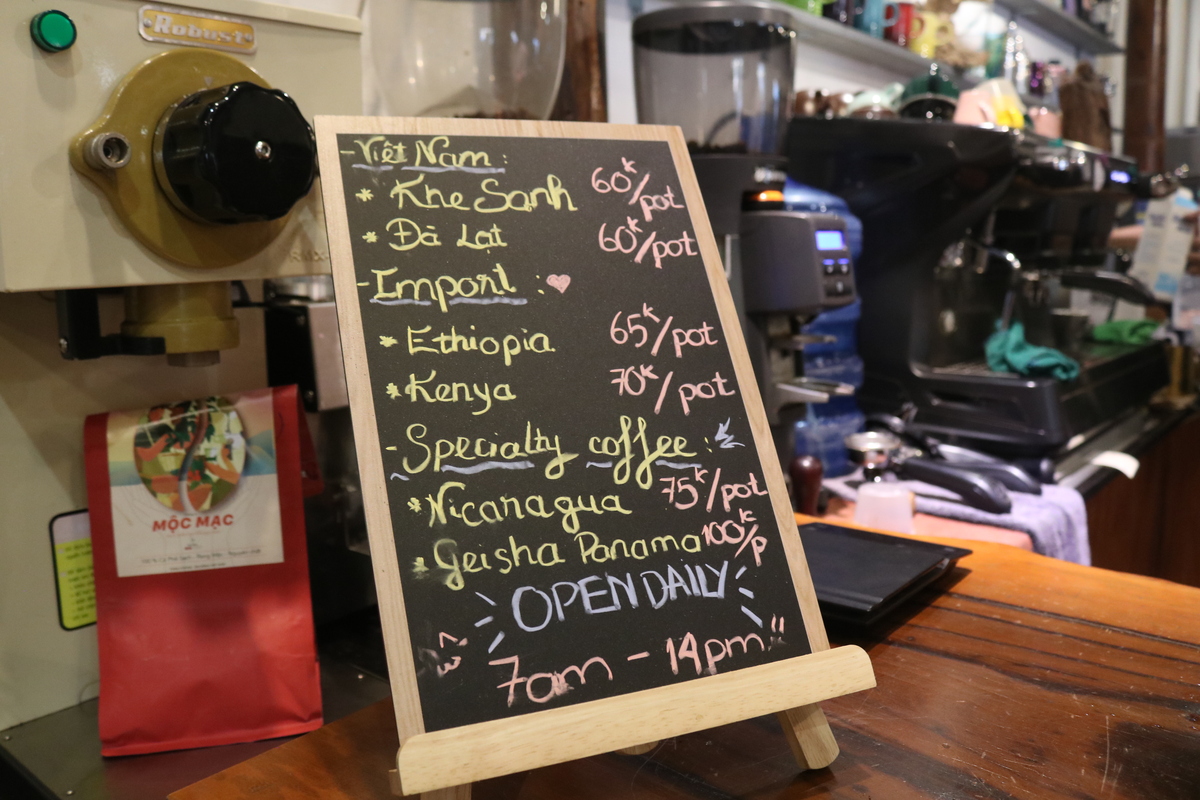 Robust
- Việt Nam :
* Khe Sanh 60k/pot
* Đà Lạt 60k/pot
- Import : ♥
* Ethiopia 65k/pot
* Kenya 70k/pot
- Specialty coffee :
* Nicaragua 75k/pot
* Geisha Panama 100k/p
OPEN DAILY
7am - 14pm
MỘC MẠC